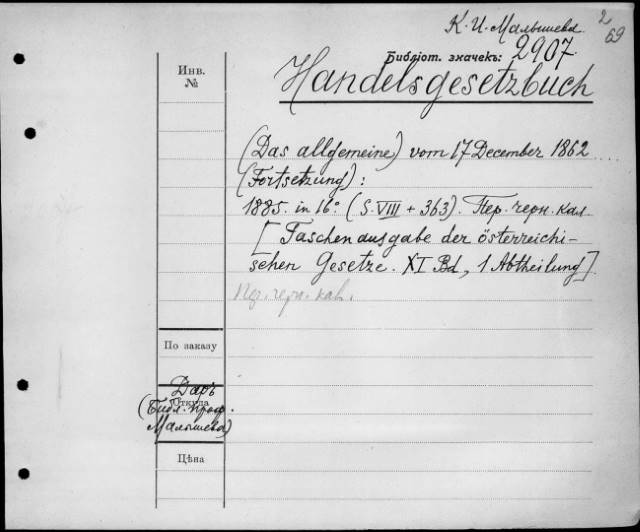 К. И. Малышева
2
69
Библіот. значекъ: 2907.
Инв.
№
Handelsgesetzbuch
(Das allgemeine) vom 17 December 1862
(Fortsetzung):
1885. in 16°. (S. VIII + 363). Пер. черн. кал.
[Taschenausgabe der österreichi-
schen Gesetze. XI Bd, 1 Abtheilung].
Пер. черн. кал.
По заказу
Даръ
Откуда
(Библ. проф.
Малышева)
Цѣна